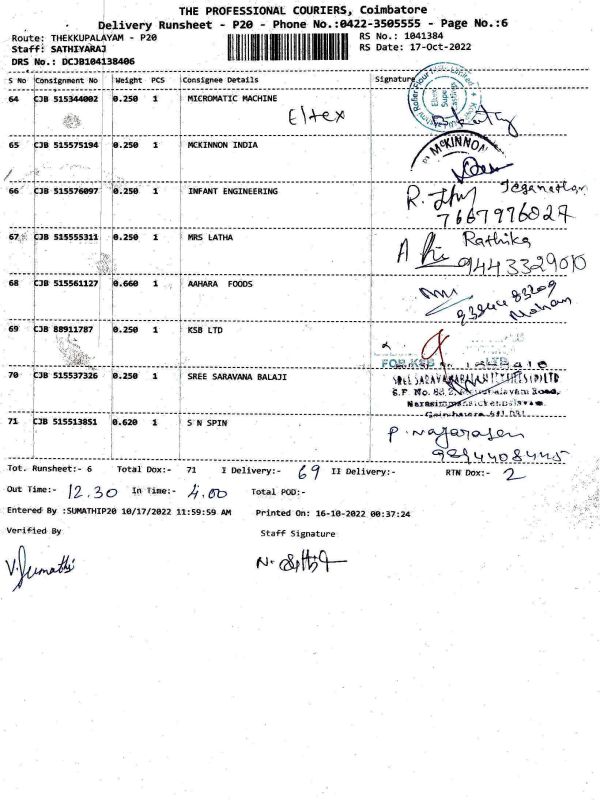 THE PROFESSIONAL COURIERS, Coimbatore
Delivery Runsheet - P20 - Phone No.:0422-3505555 - Page No.:6
Route: THEKKUPALAYAM - P20 RS No.: 1041384
Staff: SATHIYARAJ RS Date: 17-Oct-2022
DRS No.: DCJB104138406
S No Consignment No Weight PCS Consignee Details Signature
64 CJB 515344002 0.250 1 MICROMATIC MACHINE
Eltex
65 CJB 515575194 0.250 1 MCKINNON INDIA MCKINNON
66 CJB 515576097 0.250 1 INFANT ENGINEERING Jeganathan
7667976027
67 CJB 515555311 0.250 1 MRS LATHA Rathika
9443329010
68 CJB 515561127 0.660 1 AAHARA FOODS
Mohan
69 CJB 88911787 0.250 1 KSB LTD
FOR KSB LTD
70 CJB 515537326 0.250 1 SREE SARAVANA BALAJI
S.F. No.
71 CJB 515513851 0.620 1 S N SPIN P. Nagarasen
Tot. Runsheet:- 6 Total Dox:- 71 I Delivery:- 69 II Delivery:- RTN Dox:- 2
Out Time:- 12.30 In Time:- 4.00 Total POD:-
Entered By :SUMATHIP20 10/17/2022 11:59:59 AM Printed On: 16-10-2022 00:37:24
Verified By Staff Signature
V. Sumathi